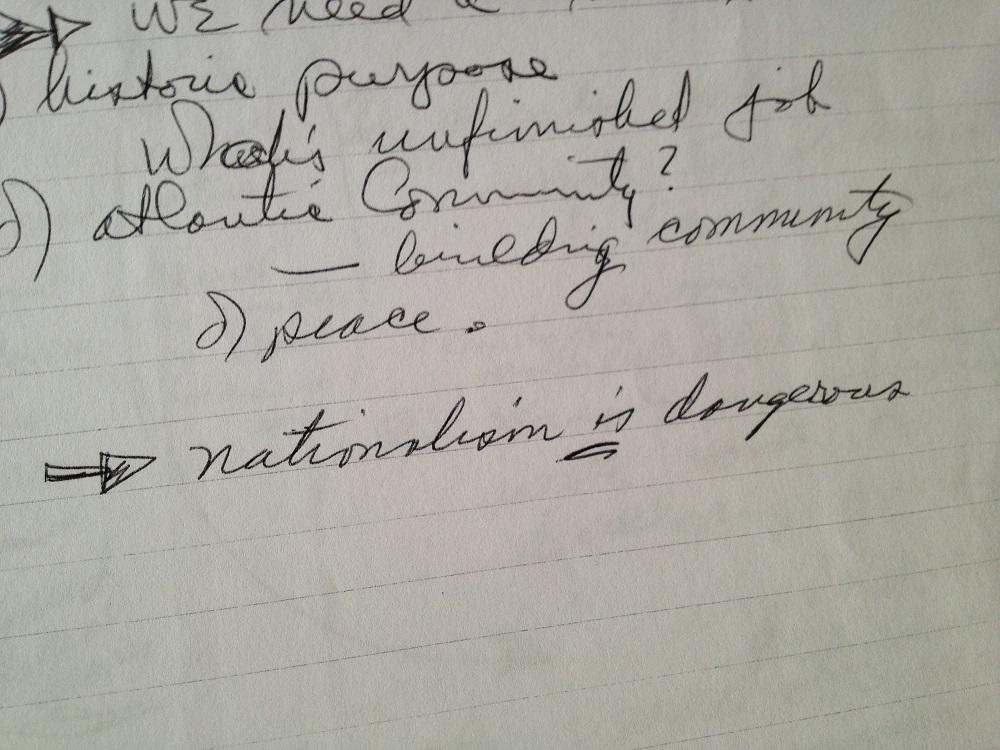 WE need a
historic purpose
What's unfinished job
δ) atlantic Community?
— building community
δ) peace.
nationalism is dangerous